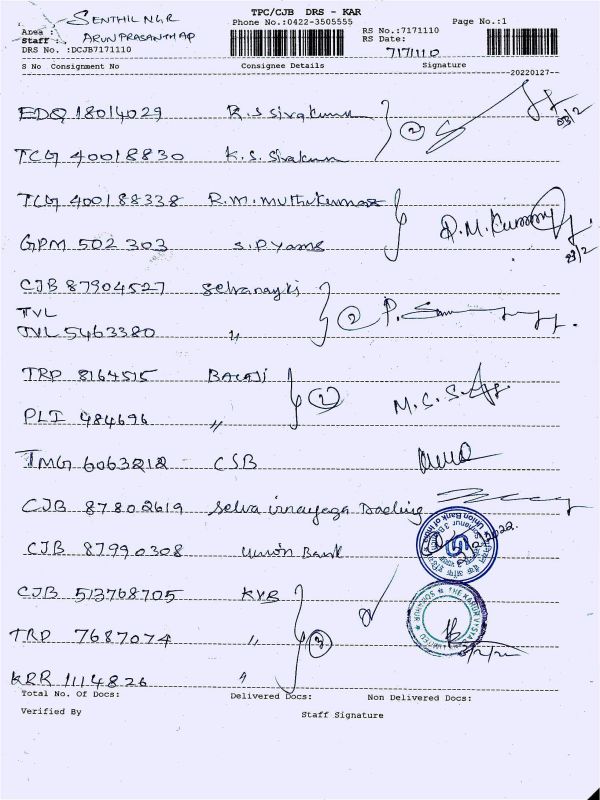 TPC/CJB DRS - KAR
Phone No.:0422-3505555
Page No.:1
Area : SENTHIL NGR
Staff : ARUN PRASANTH AP
DRS No. :DCJB7171110
RS No.:7171110
RS Date:
7171110
S No Consignment No Consignee Details Signature
20220127
EDQ 18014029 R.S Sivakumar
03/2
TCG 40018830 K.S. Sivakum
TCG 400188338 R.M. Muthukumar
GPM 502 303 S.P Yams
R.M.Kumar
03/2
CJB 87904527 Selvanayki
TVL
TVL 5463380 "
TRP 8164515 Balaji
PLI 484696 "
M.C.S.
TMG 6063212 CSB
CJB 87802619 Selva vinayaga
CJB 87990308 Union Bank
Union Bank of India
CJB 513768705 KVB
THE KARUR VYSYA LIMITED
TRP 7687074 "
KRR 1114826 "
Total No. Of Docs: Delivered Docs: Non Delivered Docs:
Verified By Staff Signature